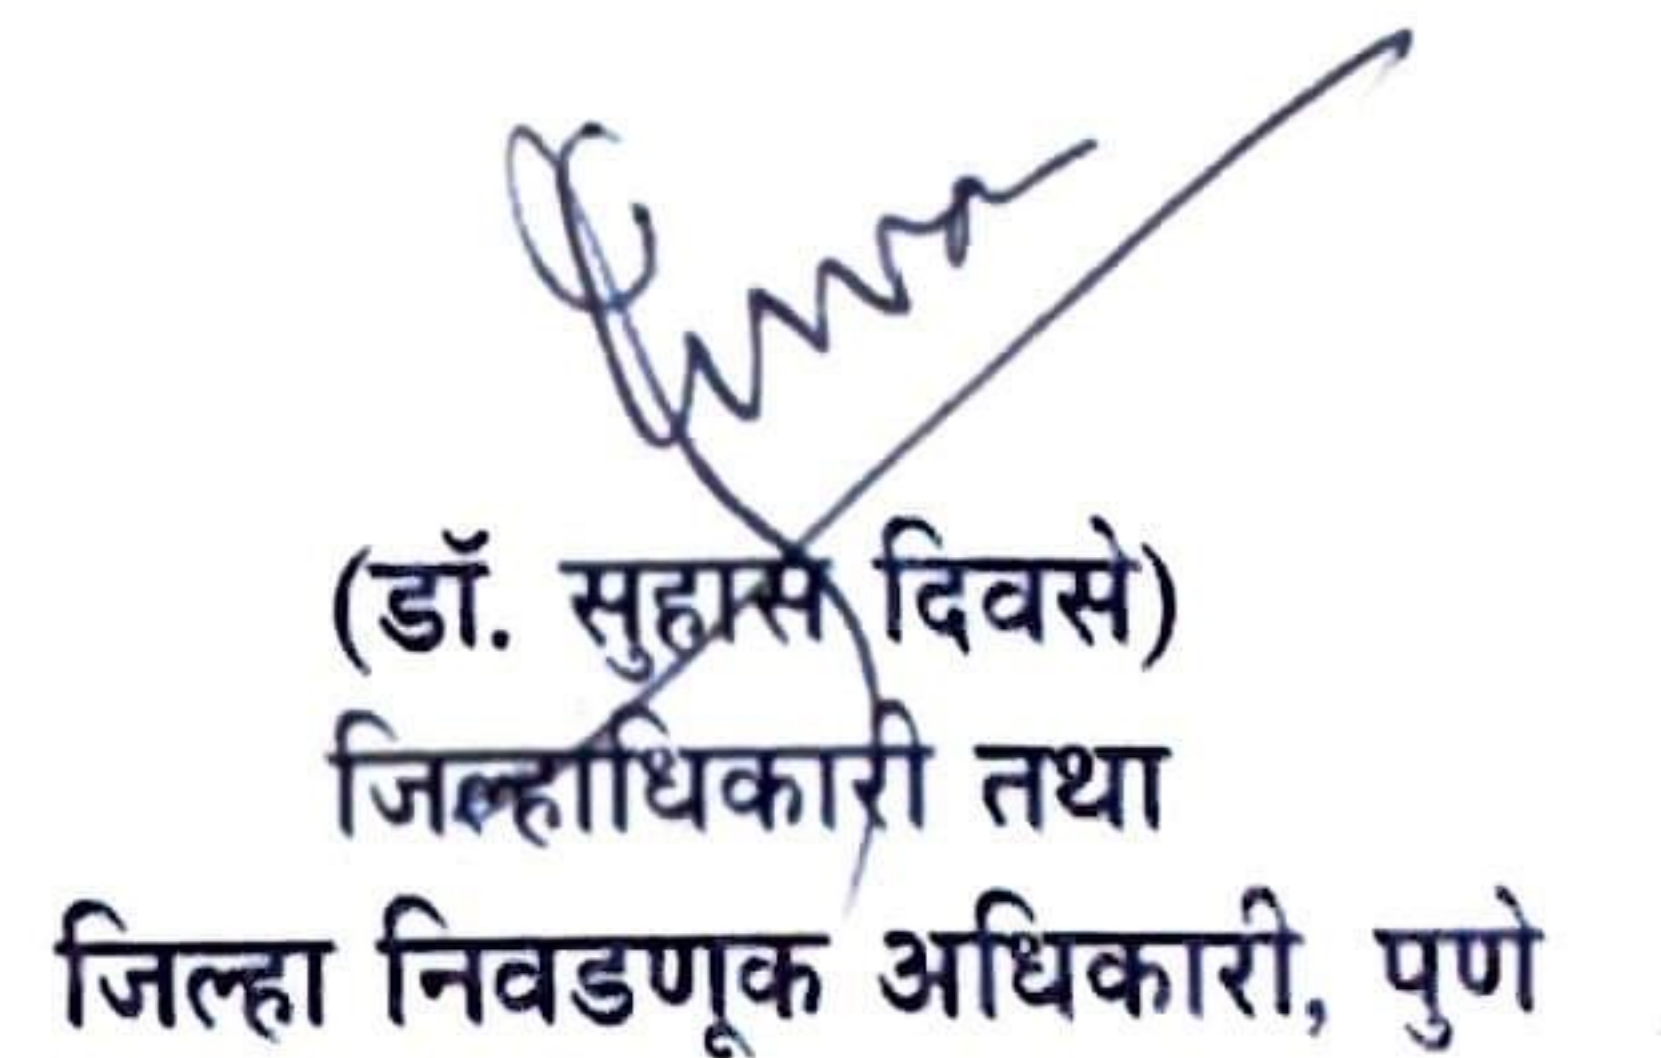 (डॉ. सुहास दिवसे)
जिल्हाधिकारी तथा
जिल्हा निवडणूक अधिकारी, पुणे